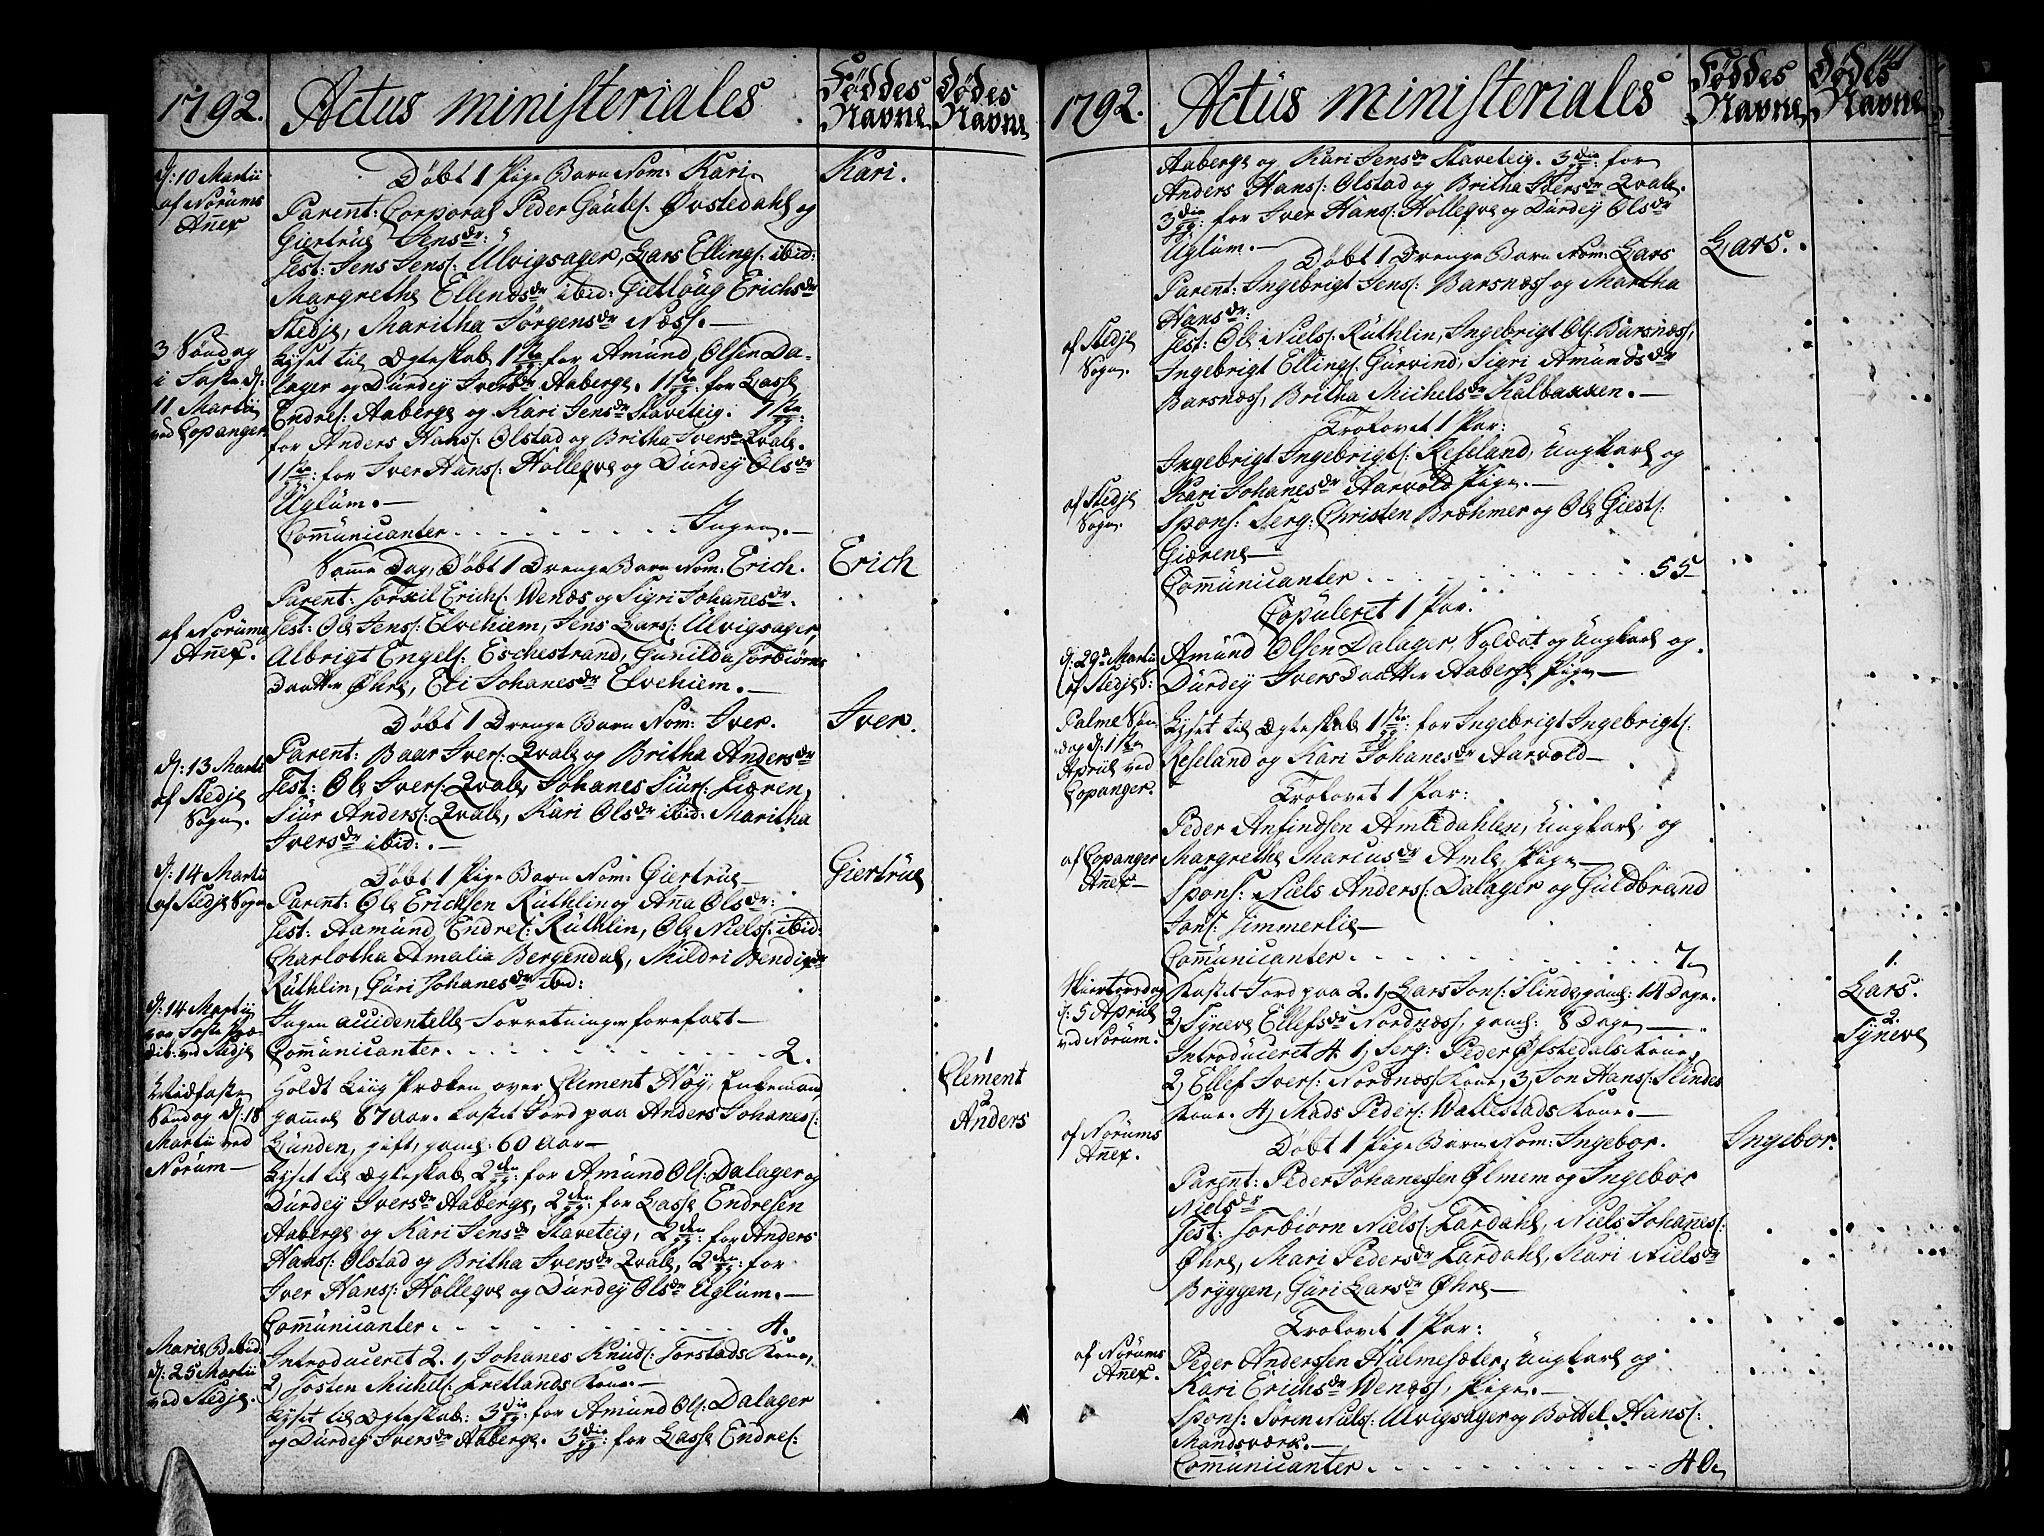 1792.
Actus ministeriales
Føddes Navne
Dødes Navne
d: 10 Martii
af Norums
Añex
Døbt 1 Pige Barn Nom: Kari.
Kari.
Parent: Corporal Peder Gautes: Øvstedahl og
Giertrue Jensdr:
Test: Jens Jens: Ulvigsager, Lars Ellings: ibid:
Margrethe Ellendsdr ibid: Gietloug Erichsdr
Stedje, Maritha Jørgensdr Næss.
3 Søndag
i Faste d:
11 Martii
ved Copanger
Lyset til Ægteskab 1ste gg: for Amund Olsen Da-
lager og Durdey Iversdr Aaberge. 1ste gg: for Lasse
Endres: Aaberge og Kari Jensdr Staveteig. 1ste gg:
for Anders Hans: Olstad og Britha Iversdr Qvale.
1ste gg: for Iver Hans: Holleqve og Durdey Olsdr
Uglum.
Com̃unicanter . . . . . . . . Ingen.
Sam̃e Dag, Døbt 1 Drenge Barn Nom: Erich.
Erich
af Norums
Añex.
Parent: Torkil Erichs: Wenæs og Sigri Johañesdr.
Test: Ole Jens: Elvehiem, Jens Lars: Ulvigsager,
Albrigt Engels: Eschestrand, Gunilda Torbiørns
Daatter Øhre, Eli Johanesdr Elvehiem.
Døbt 1 Drenge Barn Nom: Iver.
Iver.
d: 13 Martii
af Stedje
Sogn.
Parent: Baar Ivers: Qvale og Britha Andersdr
Test: Ole Ivers: Qvale, Johanes Siurs: Fiæren,
Siur Anders: Qvale, Kari Olsdr ibid: Maritha
Iversdr ibid:
d: 14 Martii
af Stedje Sogn
Døbt 1 Pige Barn Nom: Giertrue
Giertrue
Parent: Ole Erichsen Ruthlin og Aña Olsdr:
Test: Aamund Endres: Ruthlin, Ole Niels: ibid:
Charlotha Amalia Bergendal, Mildri Bendixdr
Ruthlin, Guri Johanesdr ibid:
d: 14 Martii
var Faste Præ-
dik: ved Stedje
Ingen accidentelle Forretninger forefalt
Com̃unicanter . . . . . . . . 2.
Midfaste
Søndag d: 18
Martii ved
Norum
Holdt Liig Præken over Clement Høy, Enkemand,
gam̃el 87 Aar. Kastet Jord paa Anders Johañes:
Lunden, gift, gaml: 60 Aar
1
Clement
2
Anders
Lyset til Ægteskab 2den gg: for Amund Ols: Dalager og
Durdey Iversdr Aaberge, 2den gg: for Lasse Endresen
Aaberge og Kari Jensdr Staveteig, 2den gg: for Anders
Hans: Olstad og Britha Iversdr Qvale, 2den gg: for
Iver Hans: Holleqve og Durdey Olsdr Uglum.
Com̃unicanter . . . . . . . . 4.
Mariæ Bebud:
d: 25 Martii
ved Stedje
Introduceret 2. 1, Johanes Knuds: Torstads Kone,
2, Tosten Michels: Fretlands Kone.
Lyset til Ægteskab: 3die gg: for Amund Ols: Dalager
og Durdey Iversdr Aaberge. 3die gg: for Lasse Endres:
1792.
Actus ministeriales
Føddes Navne
Dødes Navne
141
Aaberge og Kari Jensdr Staveteig. 3die gg: for
Anders Hans: Olstad og Britha Iversdr Qvale.
3die gg: for Iver Hans: Holleqve og Durdey Olsdr
Uglum.
Døbt 1 Drenge Barn Nom: Lars
Lars.
af Stedje
Sogn.
Parent: Ingebrigt Jens: Barsnæss og Martha
Hansdr:
Test: Ole Niels: Ruthlin, Ingebrigt Ols: Barsnæss,
Ingebrigt Ellings: Gurvind, Sigri Amundsdr
Barsnæss, Britha Michelsdr Kalbakken.
Trolovet 1 Par:
af Stedje
Sogn.
Ingebrigt Ingebrigts: Reseland, Ungkarl og
Kari Johanesdr Aarvold Pige.
Spons: Serg: Christen Bræhmer og Ole Giests:
Giærene
Com̃unicanter . . . . . . . . 55
Copuleret 1 Par.
d: 29de Martii
af Stedje S:
Amund Olsen Dalager, Soldat og Ungkarl og
Durdey Ivers Daatter Aaberge Pige
Palme Søn
dag d: 1ste
April ved
Copanger.
Lyset til Ægteskab 1ste gg: for Ingebrigt Ingebrigts:
Reseland og Kari Johanesdr Aarvold
Trolovet 1 Par:
af Copanger
Añex
Peder Anfindsen Amledahlen, Ungkarl, og
Margrethe Marcusdr Amle, Pige
Spons: Niels Anders: Dalager og Guldbrand
Jons: Timmerlie
Com̃unicanter . . . . . . . . 7.
Skiertorsdag
d: 5 April
ved Norum.
Kastet Jord paa 2. 1, Lars Jons: Slinde, gaml: 14 Dage.
2, Syneve Ellefsdr Nordnæss, gaml: 8 Dage
1.
Lars.
2.
Syneve
Introduceret 4. 1, Serg: Peder Øfstedals Kone,
2, Ellef Ivers: Nordnæss Kone, 3, Jon Hans: Slindes
Kone. 4, Mads Peders: Wallestads Kone.
af Norums
Añex.
Døbt 1 Pige Barn Nom: Ingebor.
Ingebor.
Parent: Peder Johanessen Ølmem og Ingebor
Nielsdr
Test: Torbiørn Niels: Fardahl, Niels Johañes:
Øhre, Mari Pedersdr Fardahl, Kari Nielsdr
Bryggen, Guri Larsdr Øhre
Trolovet 1 Par:
af Norums
Añex.
Peder Anderssen Hulmesæter, Ungkarl og
Kari Erichsdr Wenæss, Pige.
Spons: Søren Niels: Ulvigsager og Bottel Hans:
Mandsværk.
Com̃unicanter . . . . . . . . 40